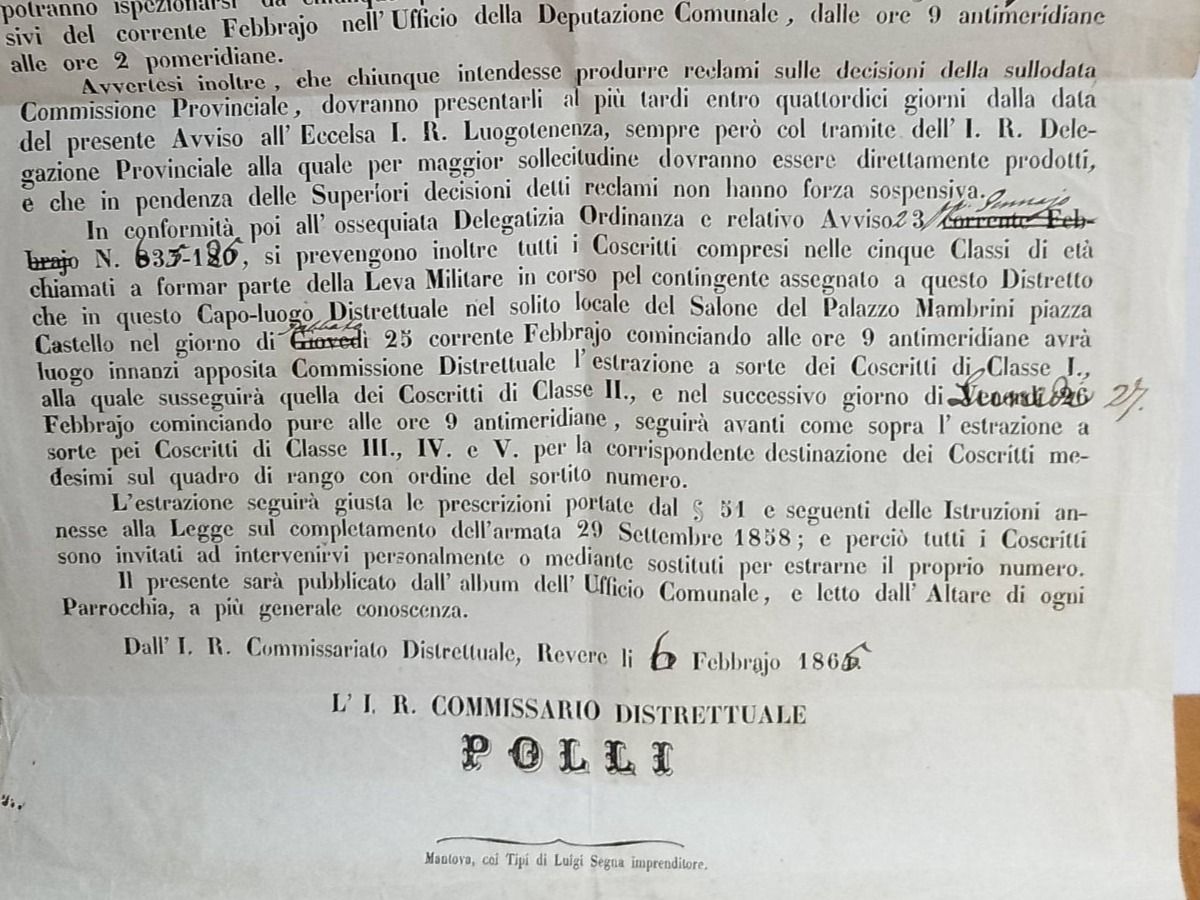 potranno ispezionarsi da
sivi del corrente Febbrajo nell' Ufficio della Deputazione Comunale, dalle ore 9 antimeridiane
alle ore 2 pomeridiane.
Avvertesi inoltre, che chiunque intendesse produrre reclami sulle decisioni della sullodata
Commissione Provinciale, dovranno presentarli al più tardi entro quattordici giorni dalla data
del presente Avviso all' Eccelsa I. R. Luogotenenza, sempre però col tramite dell' I. R. Dele-
gazione Provinciale alla quale per maggior sollecitudine dovranno essere direttamente prodotti,
e che in pendenza delle Superiori decisioni detti reclami non hanno forza sospensiva.
Gennajo
In conformità poi all' ossequiata Delegatizia Ordinanza e relativo Avviso 23 Corrente Feb-
brajo N. 635-186, si prevengono inoltre tutti i Coscritti compresi nelle cinque Classi di età
chiamati a formar parte della Leva Militare in corso pel contingente assegnato a questo Distretto
che in questo Capo-luogo Distrettuale nel solito locale del Salone del Palazzo Mambrini piazza
Sabbato
Castello nel giorno di Giovedì 25 corrente Febbrajo cominciando alle ore 9 antimeridiane avrà
luogo innanzi apposita Commissione Distrettuale l' estrazione a sorte dei Coscritti di Classe I.,
alla quale susseguirà quella dei Coscritti di Classe II., e nel successivo giorno di Venerdì 26 27.
Febbrajo cominciando pure alle ore 9 antimeridiane, seguirà avanti come sopra l' estrazione a
sorte pei Coscritti di Classe III., IV. e V. per la corrispondente destinazione dei Coscritti me-
desimi sul quadro di rango con ordine del sortito numero.
L'estrazione seguirà giusta le prescrizioni portate dal § 51 e seguenti delle Istruzioni an-
nesse alla Legge sul completamento dell'armata 29 Settembre 1858; e perciò tutti i Coscritti
sono invitati ad intervenirvi personalmente o mediante sostituti per estrarne il proprio numero.
Il presente sarà pubblicato dall' album dell' Ufficio Comunale, e letto dall' Altare di ogni
Parrocchia, a più generale conoscenza.
Dall' I. R. Commissariato Distrettuale, Revere li 6 Febbrajo 1865.
L' I. R. COMMISSARIO DISTRETTUALE
POLLI
Mantova, coi Tipi di Luigi Segna imprenditore.